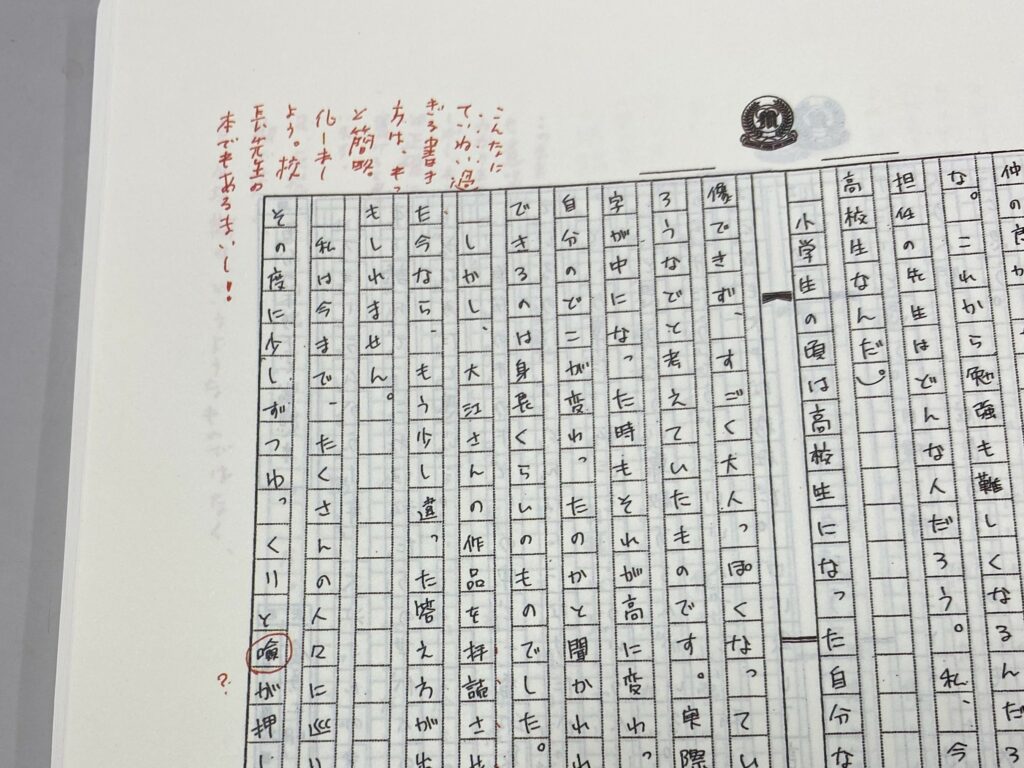 仲の
な。これから勉強も難しくなるんだろ
担任の先生はどんな人だろう。私、今
高校生なんだ」。
小学生の頃は高校生になった自分な
像できず、すごく大人っぽくなってい
ろうなどと考えていたものです。実際
字が中になった時もそれが高に変わっ
自分のどこが変わったのかと聞かれ
できるのは身長くらいのものでした。
しかし、大江さんの作品を拝読さ
た今なら、もう少し違った答え方が
もしれません。
私は今まで、たくさんの人口に巡り
その度に少しずつゆっくりと噞が押し
こんなに
ていねい過
ぎる書き
方は、もっ
と簡略
化しまし
ょう。校
長先生の
本でもあるまいし!
?